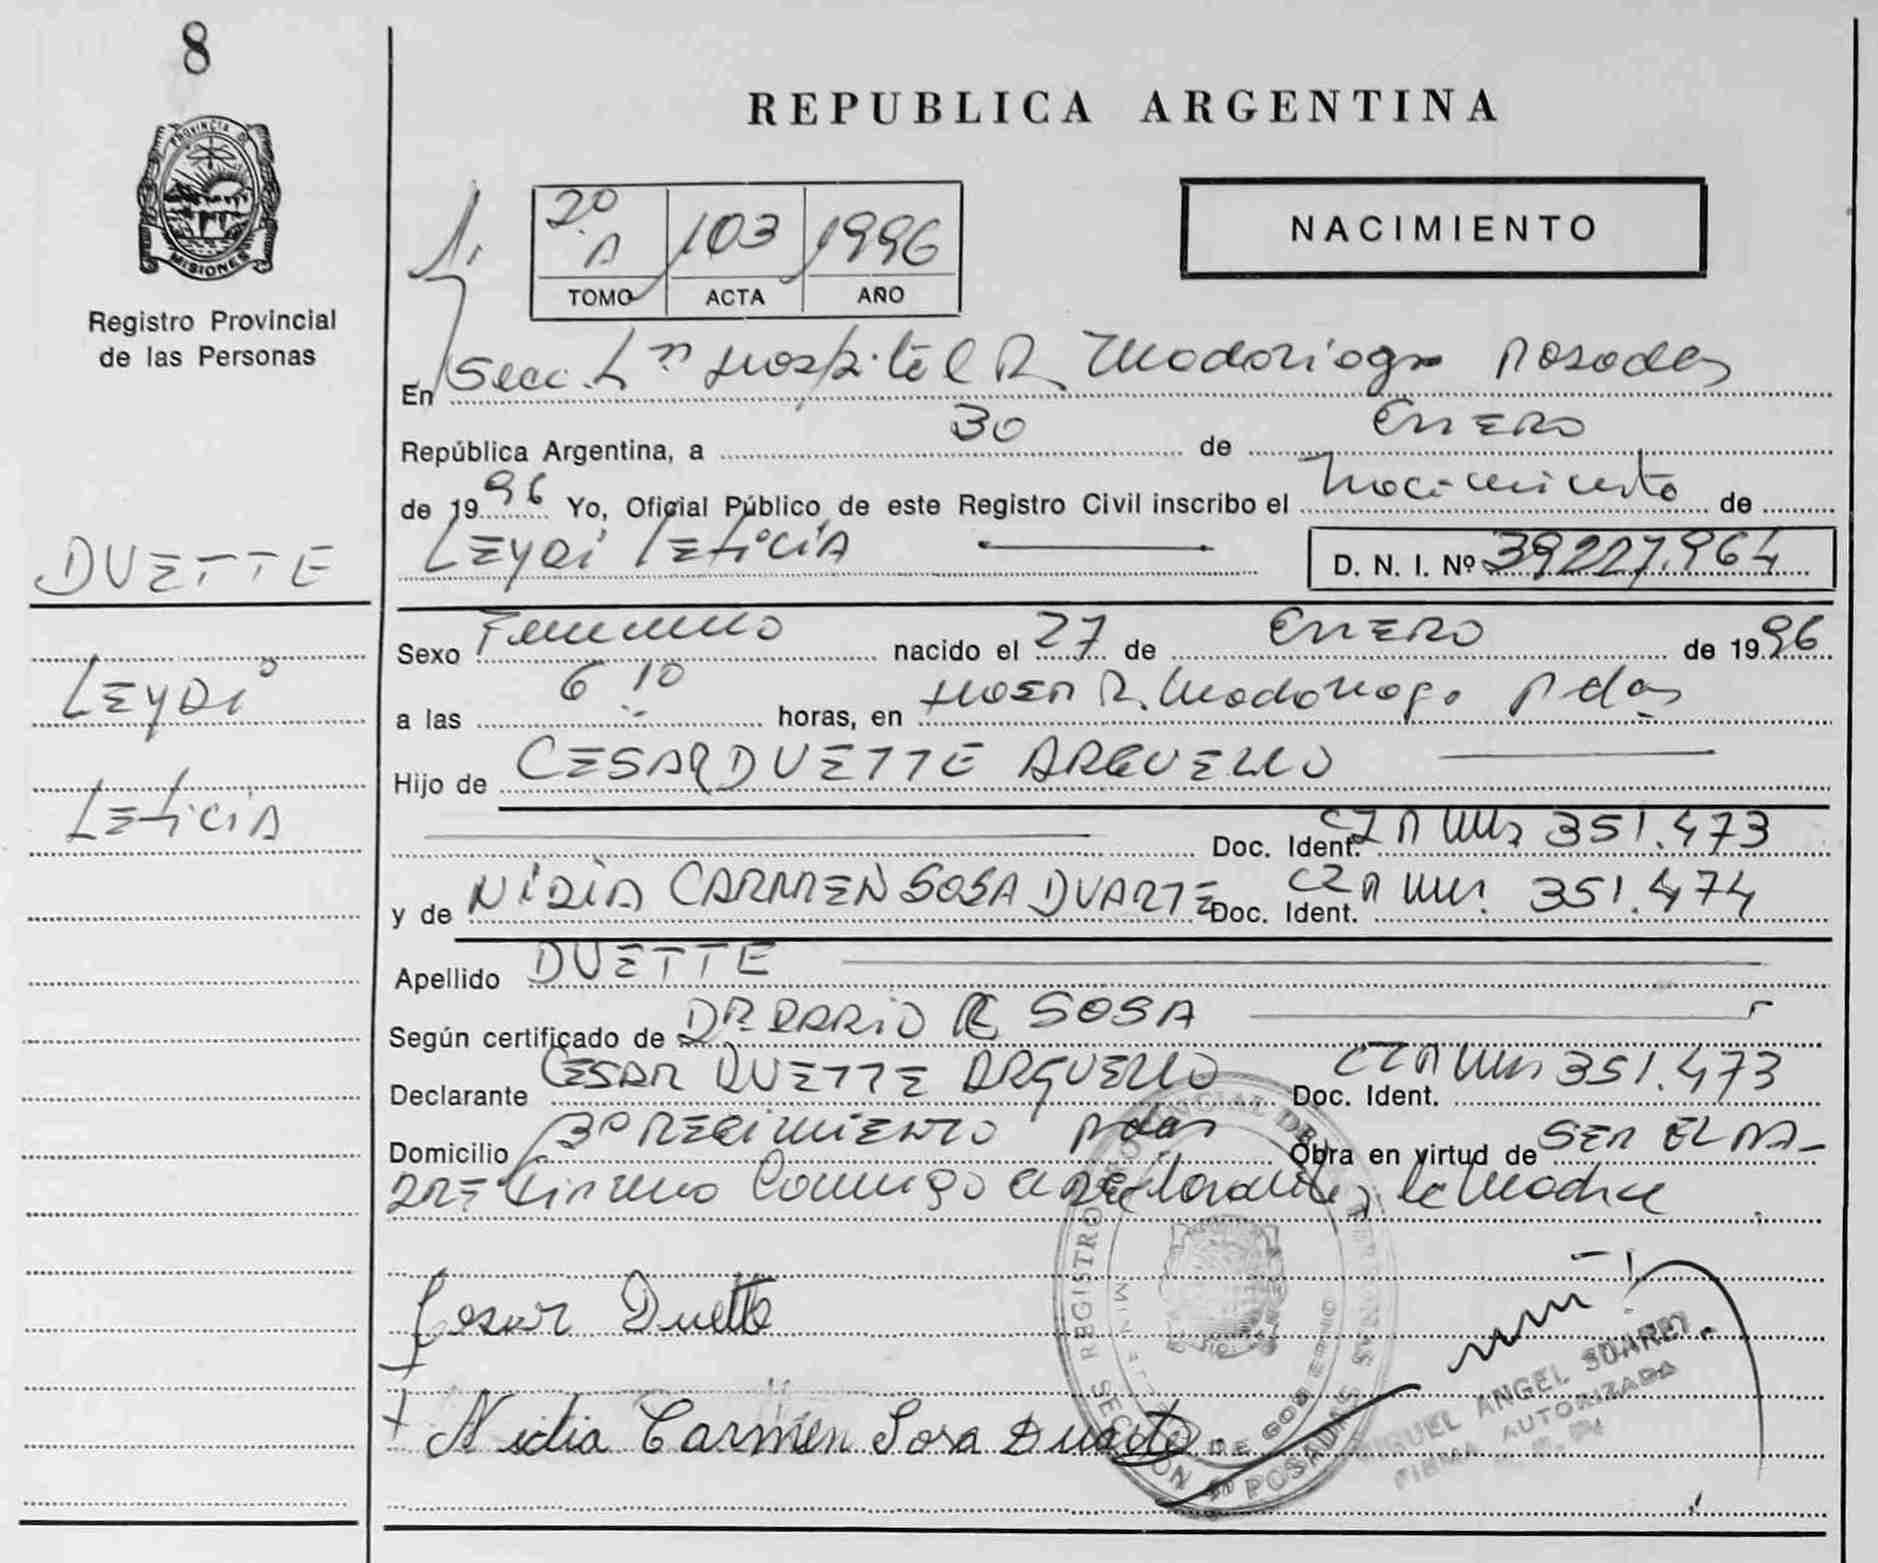 8
PROVINCIA DE
MISIONES
Registro Provincial
de las Personas
DUETTE
LEYDI
LETICIA
REPUBLICA ARGENTINA
NACIMIENTO
2º A 103 1996
TOMO ACTA AÑO
En Secc. Hospital R. Madariaga Posadas
República Argentina, a 30 de ENERO
de 1996 Yo, Oficial Público de este Registro Civil inscribo el Nacimiento de
LEYDI LETICIA D. N. I. Nº 39227.964
Sexo Femenino nacido el 27 de ENERO de 1996
a las 6 10 horas, en HOSP R. Madariaga Pdas
Hijo de CESAR DUETTE ARGUELLO
Doc. Ident. 351.473
y de NIDIA CARMEN SOSA DUARTE Doc. Ident. 351.474
Apellido DUETTE
Según certificado de Dr DARIO R SOSA
Declarante CESAR DUETTE ARGUELLO Doc. Ident. 351.473
Domicilio Bº REGIMIENTO Pdas Obra en virtud de SER EL PA-
DRE Firman Conmigo el declarante y la Madre
Cesar Duette
Nidia Carmen Sosa Duarte
REGISTRO PROVINCIAL DE LAS PERSONAS
DE GOBIERNO
SECCION POSADAS
MIGUEL ANGEL SUAREZ
FIRMA AUTORIZADA